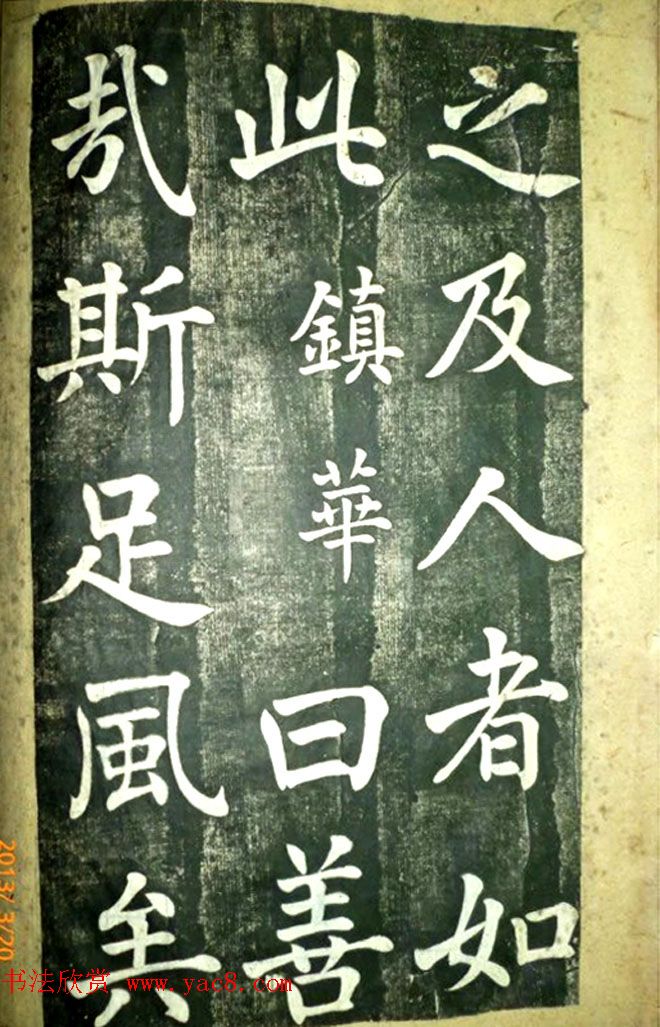 之及人者如
此鎮華曰善
哉斯足風矣
书法欣赏 www.yac8.com
2013/ 3/20